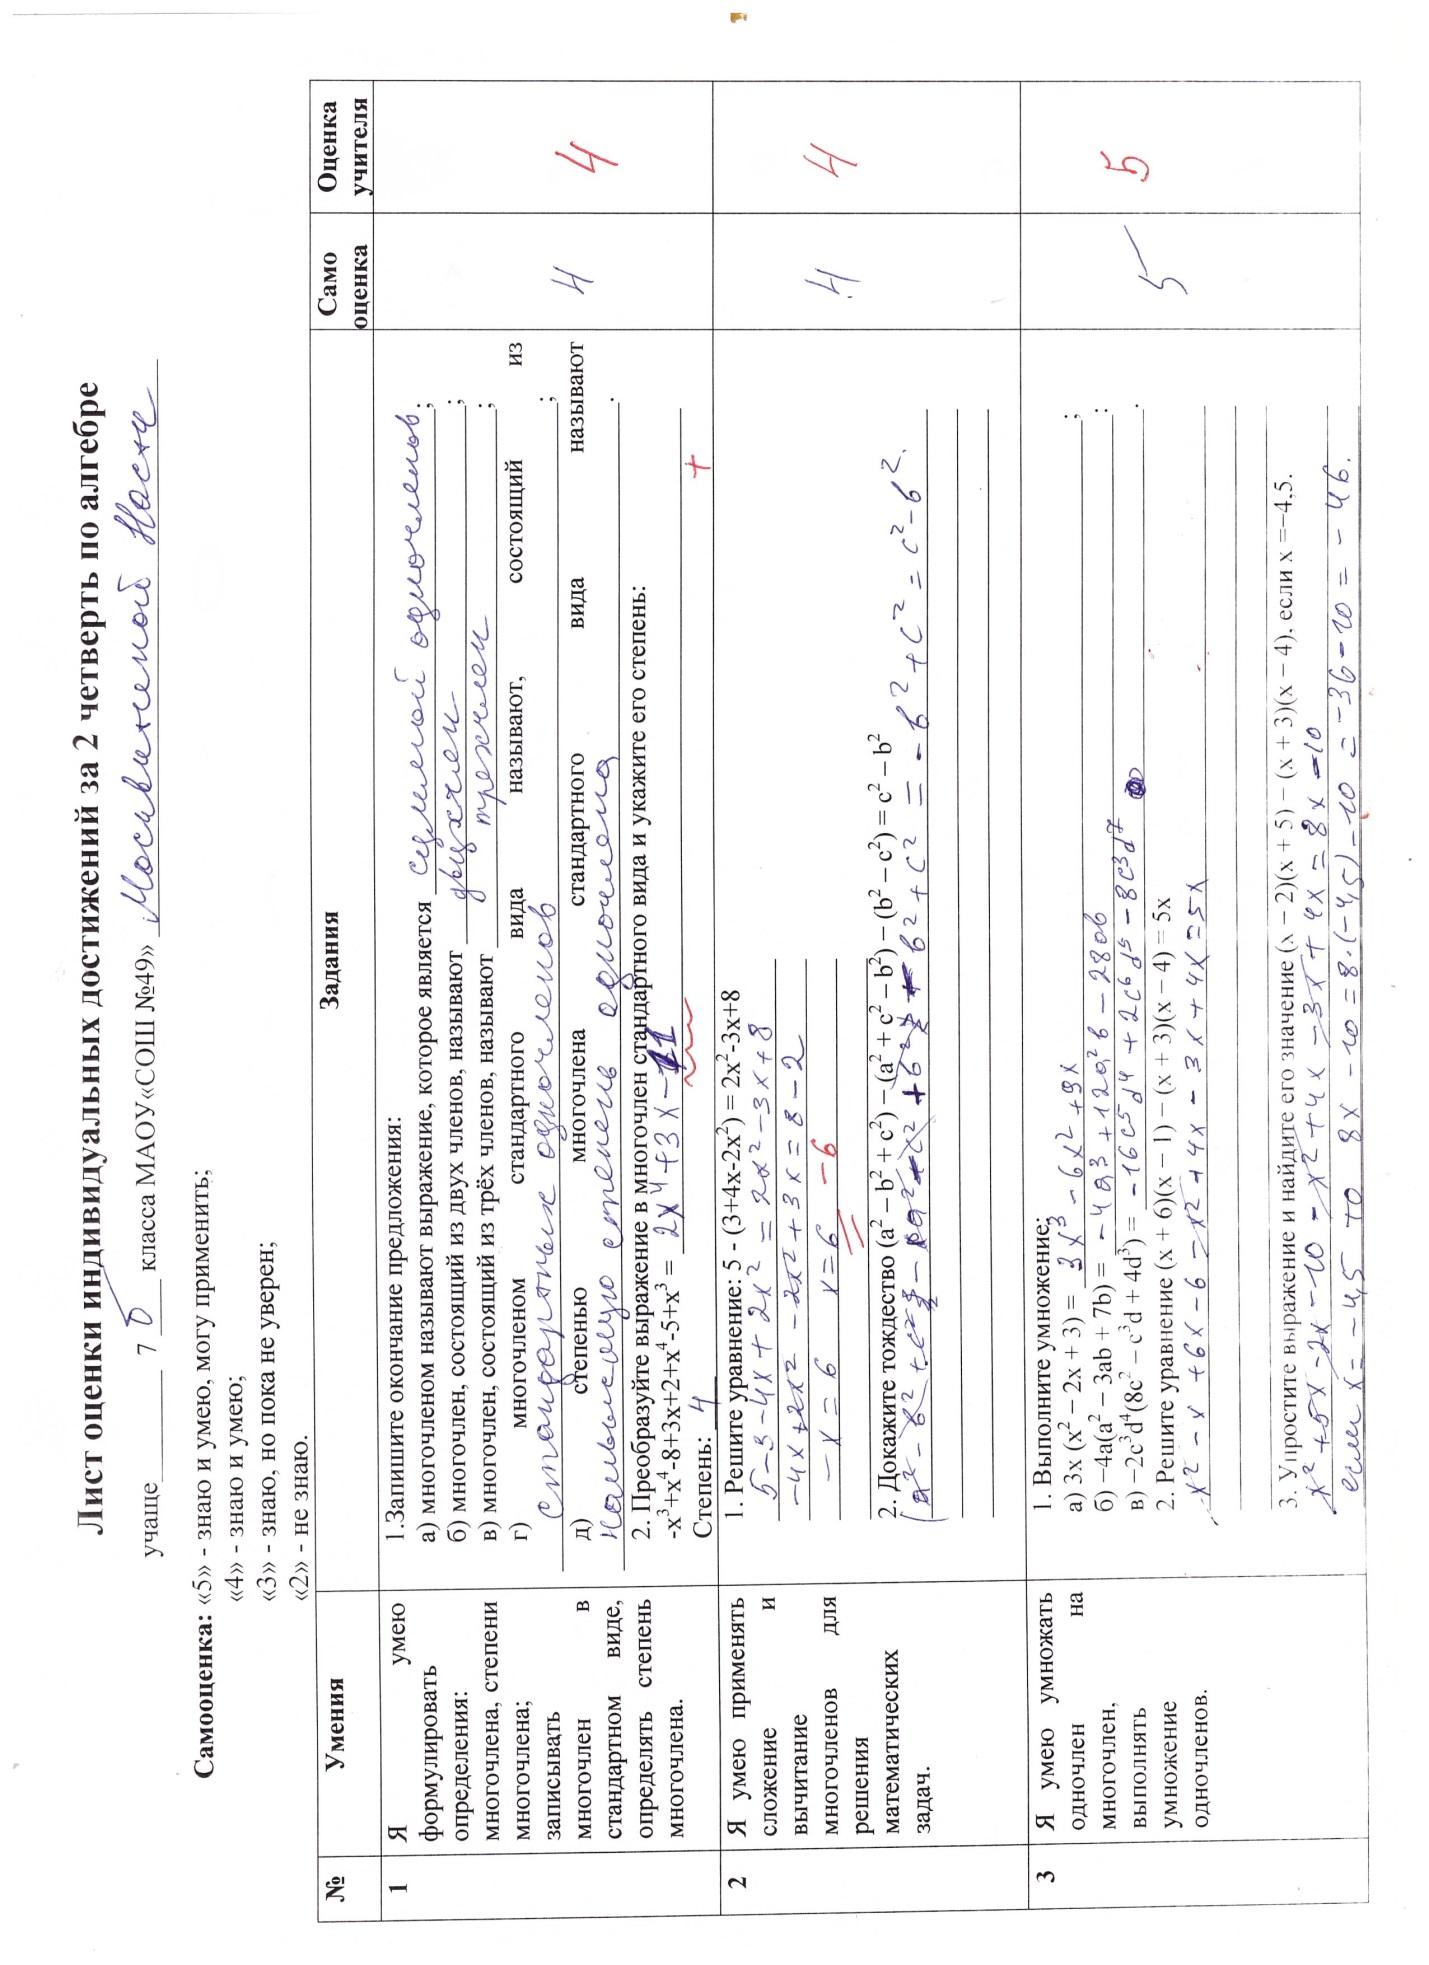 Лист оценки индивидуальных достижений за 2 четверть по алгебре
учаще 7 б класса МАОУ«СОШ №49» Москвитеной Насте
Самооценка: «5» - знаю и умею, могу применить;
«4» - знаю и умею;
«3» - знаю, но пока не уверен;
«2» - не знаю.
№ Умения Задания Само оценка Оценка учителя
1
Я умею
формулировать
определения:
многочлена, степени
многочлена;
записывать
многочлен в
стандартном виде,
определять степень
многочлена.
1.Запишите окончание предложения:
а) многочленом называют выражение, которое является суммой одночленов;
б) многочлен, состоящий из двух членов, называют двухчлен;
в) многочлен, состоящий из трёх членов, называют трехчлен;
г) многочленом стандартного вида называют, состоящий из
стандартных одночленов;
д) степенью многочлена стандартного вида называют
наивысшую степень одночлена.
2. Преобразуйте выражение в многочлен стандартного вида и укажите его степень:
-x³+x⁴-8+3x+2+x⁴-5+x³ = 2x⁴+3x-11
Степень: 4 +
4
4
2
Я умею применять
сложение и
вычитание
многочленов для
решения
математических
задач.
1. Решите уравнение: 5 - (3+4x-2x²) = 2x²-3x+8
5-3-4x+2x² = 2x²-3x+8
-4x+2x²-2x²+3x=8-2
-x=6 x=6 -6
2. Докажите тождество (a² – b² + c²) – (a² + c² – b²) – (b² – c²) = c² – b²
= -b²+c² = c²-b².
4
4
3
Я умею умножать
одночлен на
многочлен,
выполнять
умножение
одночленов.
1. Выполните умножение:
а) 3x (x² – 2x + 3) = 3x³-6x²+9x;
б) –4a(a² – 3ab + 7b) = -4a3+12a²b-28ab:
в) –2c³d⁴(8c² – c³d + 4d³) = -16c⁵d⁴+2c⁶d⁵-8c³d⁷.
2. Решите уравнение (x + 6)(x – 1) – (x + 3)(x – 4) = 5x
x²-x+6x-6-x²+4x-3x+4x=5x
3. Упростите выражение и найдите его значение (x – 2)(x + 5) – (x + 3)(x – 4), если x =–4,5.
x²+5x-2x-10-x²+4x-3x+4x=8x-10
если x=-4,5 то 8x-10=8·(-4,5)-10=-36-10=-46.
5
5